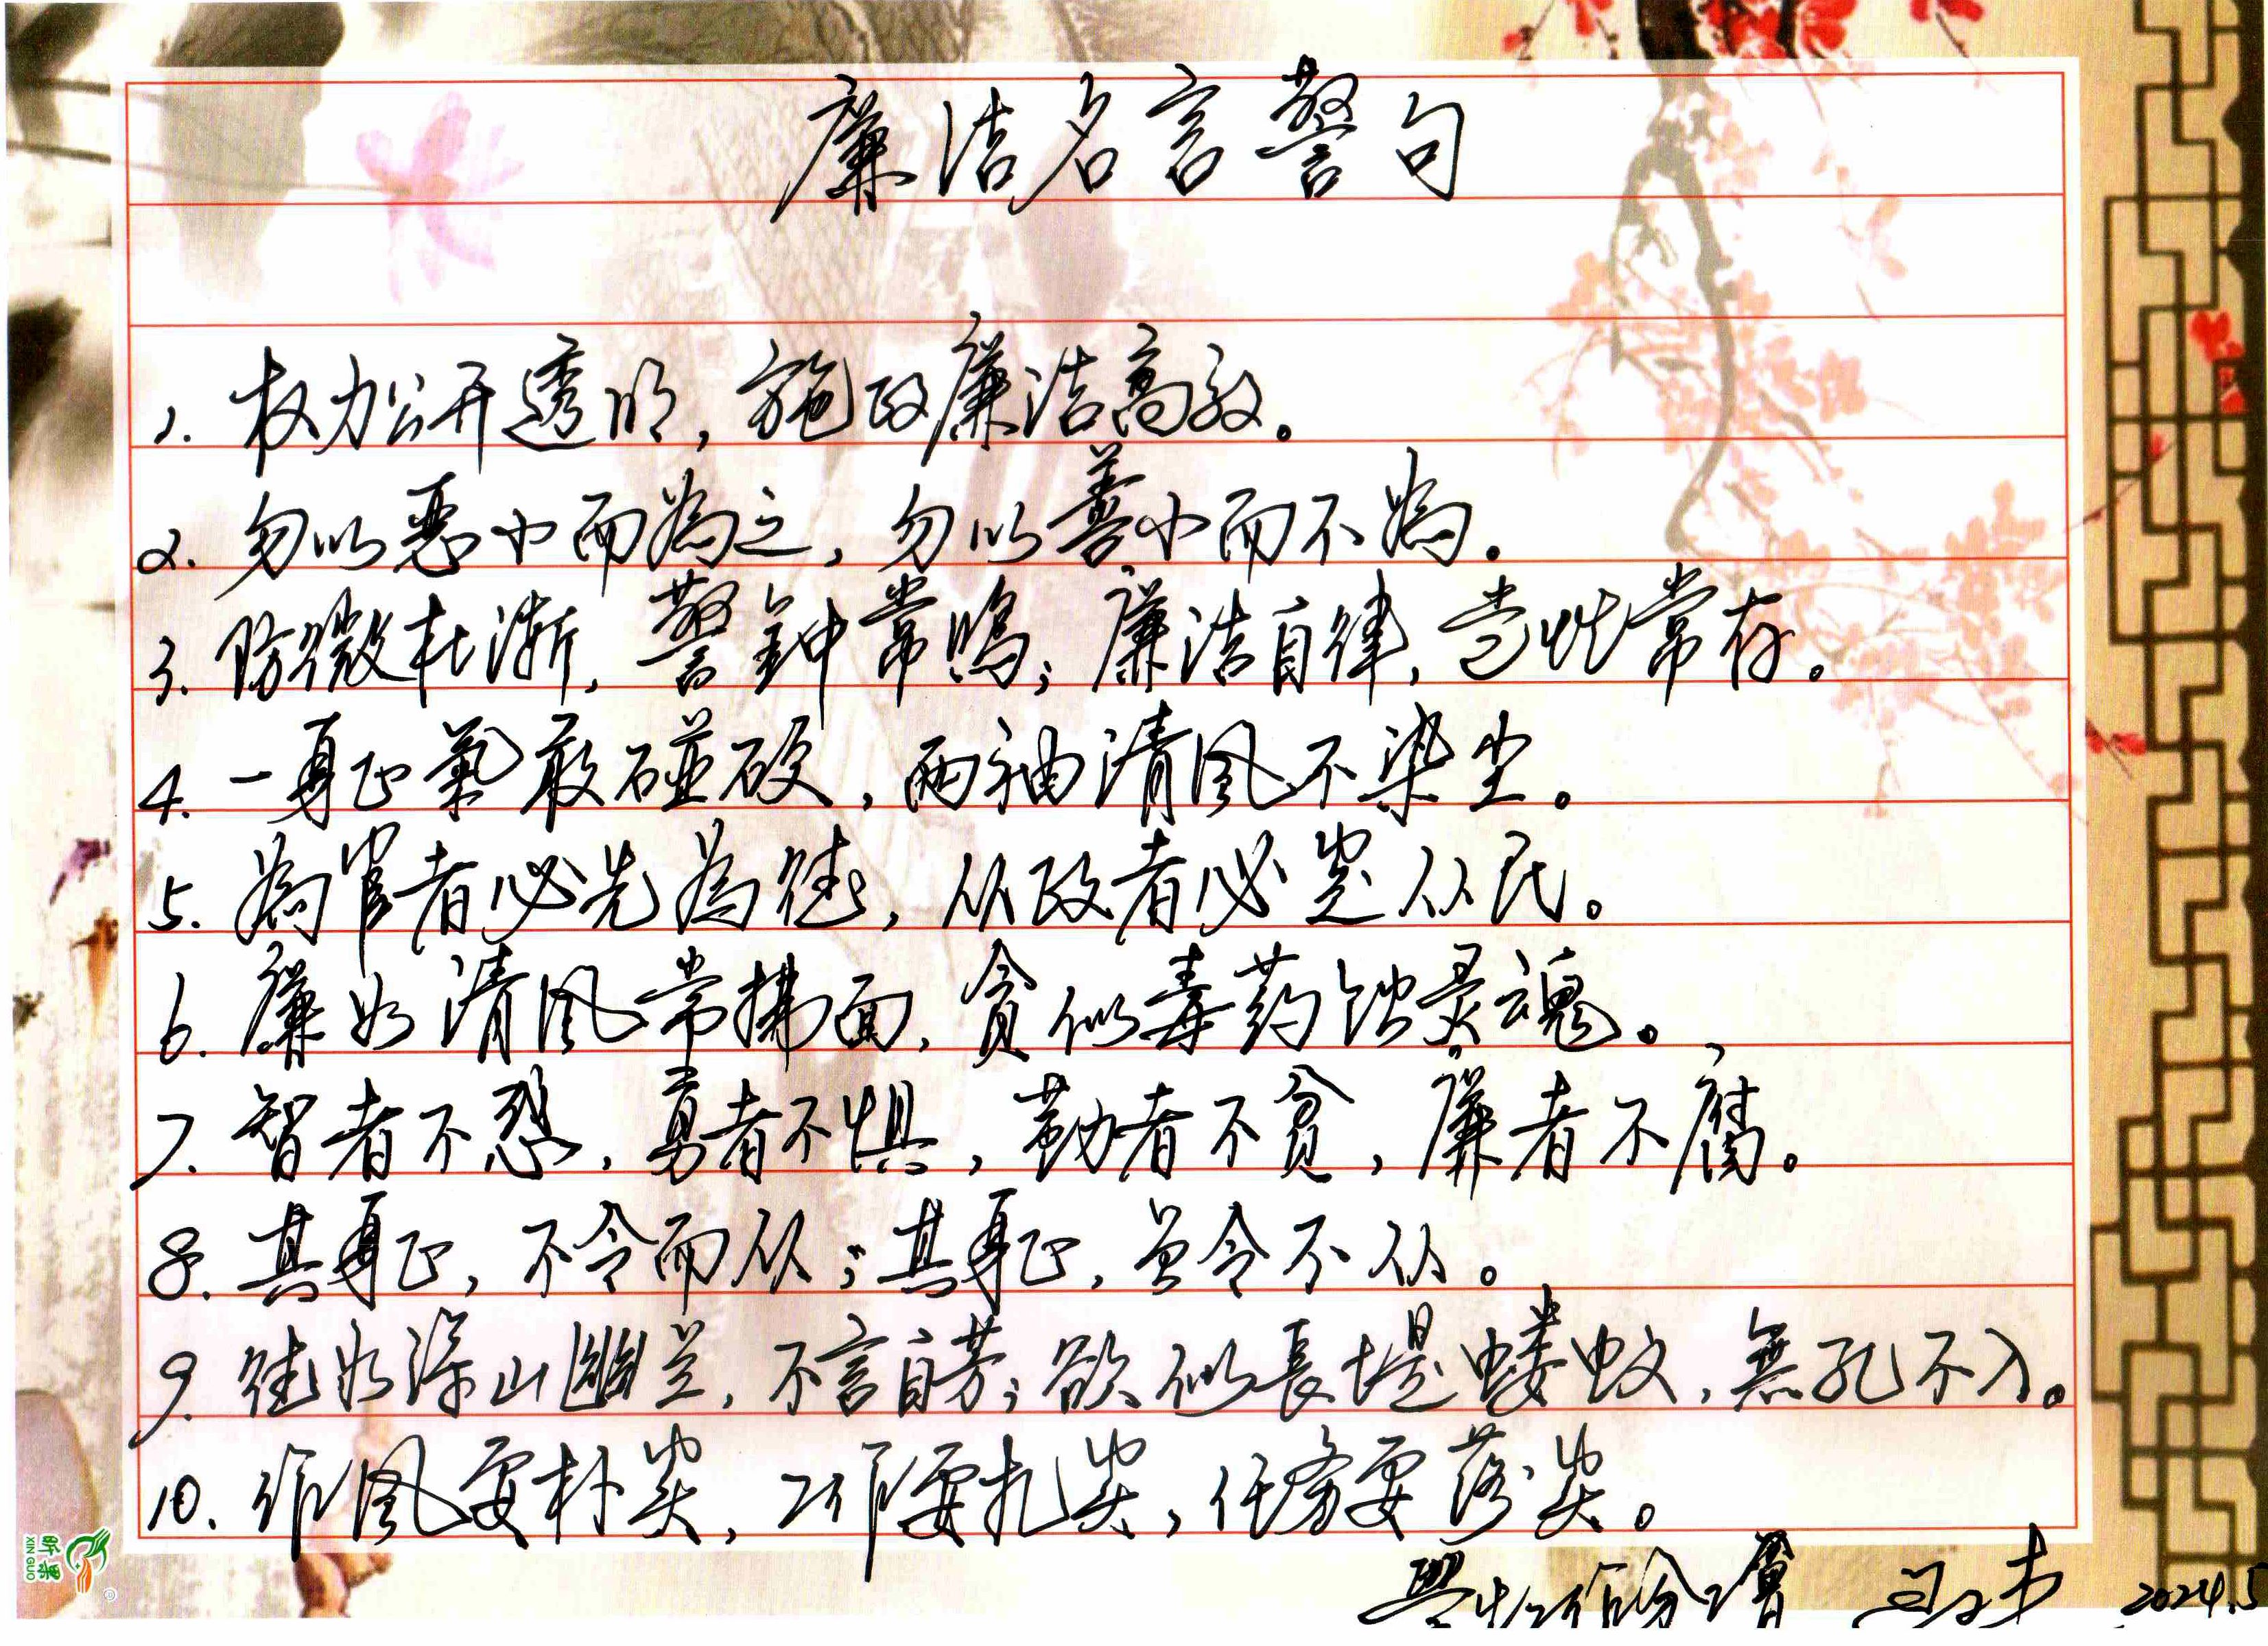 廉洁名言警句
1. 权力公开透明，施政廉洁高效。
2. 勿以恶小而為之，勿以善小而不為。
3. 防微杜渐，警鈡常鸣；廉洁自律，党性常存。
4. 一身正氣敢碰硬，两袖清风不染尘。
5. 為官者必先為德，从政者必定从民。
6. 廉如清风常拂面，贪似毒药蚀灵魂。
7. 智者不惑，勇者不惧，勤者不贫，廉者不腐。
8. 其身正，不令而从；其身正，虽令不从。
9. 德如深山幽兰，不言自芳；欲似長堤蝼蚁，無孔不入。
10. 作风要朴实，工作要扎实，任务要落实。
2024.5
昕果
XIN GUO